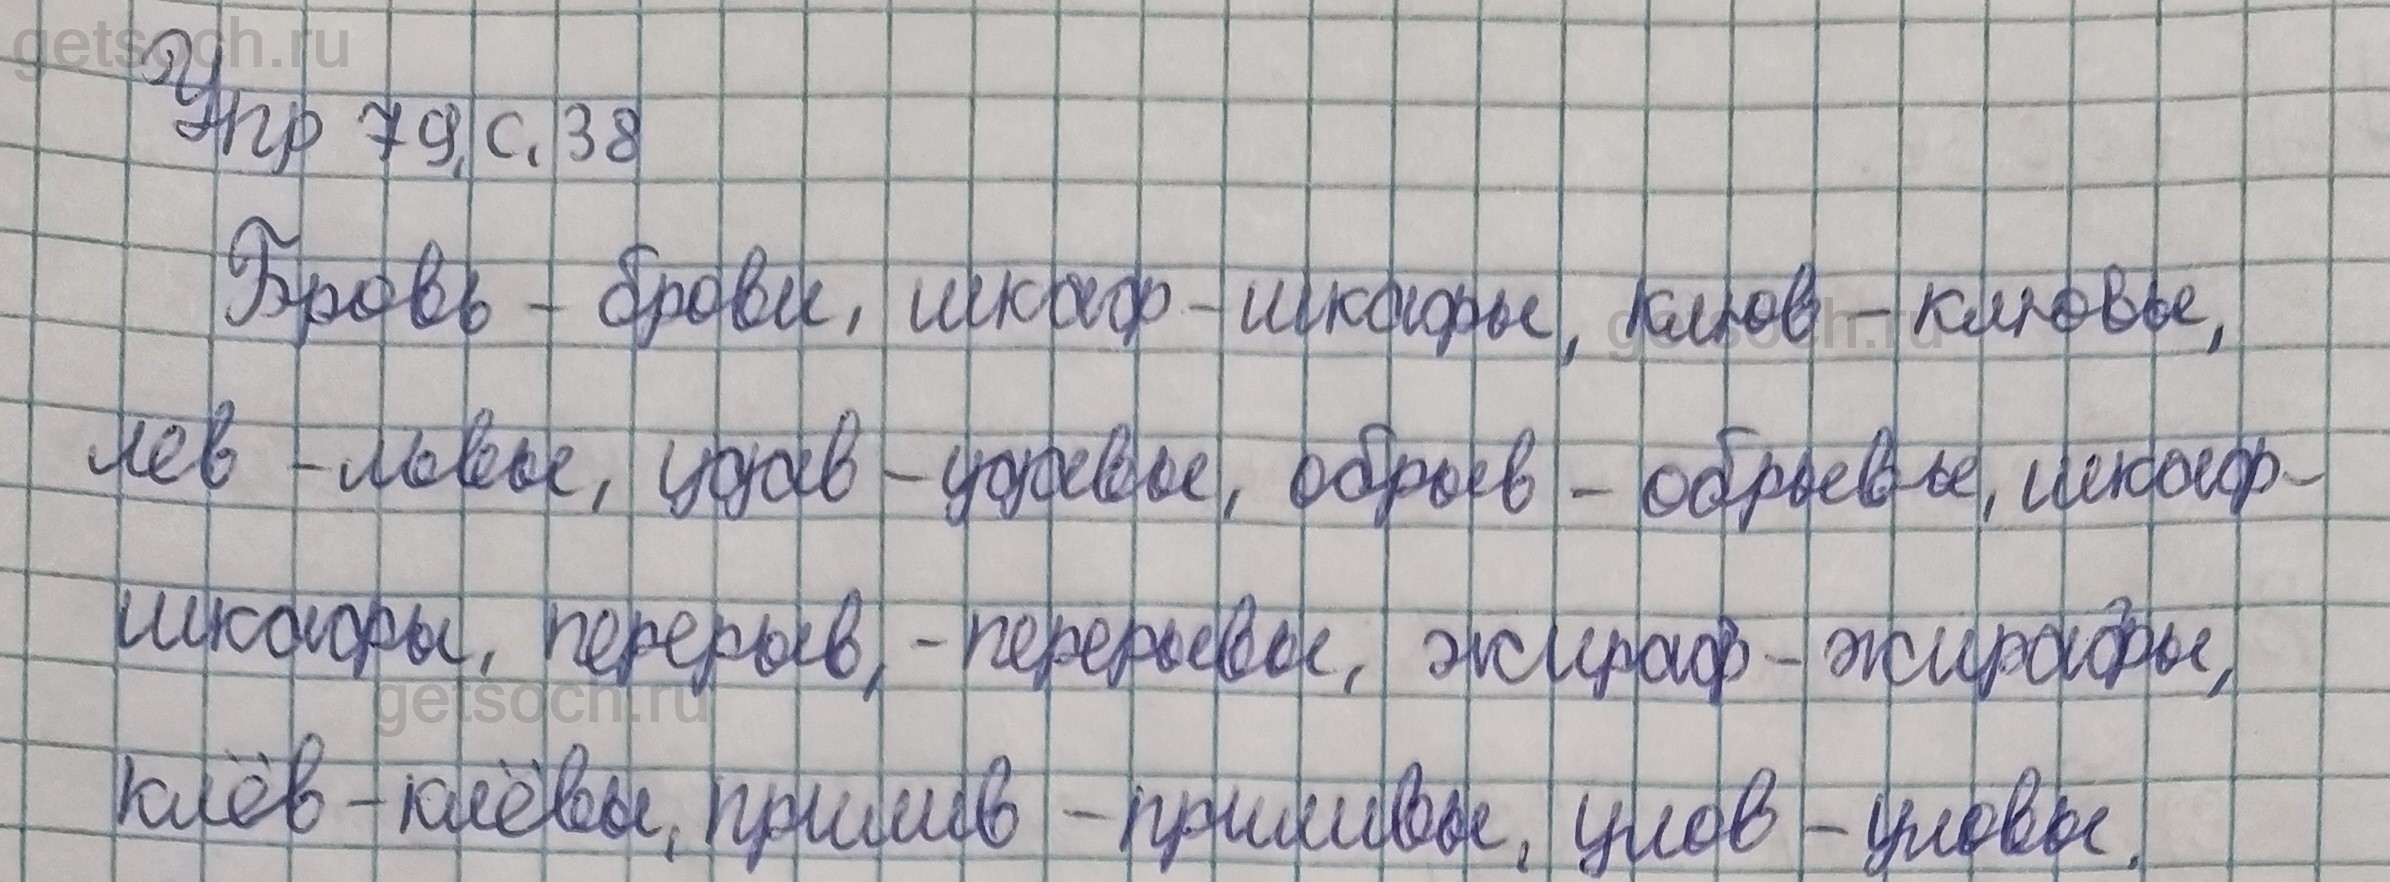 getsoch.ru
Упр 79, с. 38
Бровь - брови, шкаф - шкафы, клюв - клювы,
getsoch.ru
лев - львы, удав - удавы, обрыв - обрывы, шкаф -
шкафы, перерыв, - перерывы, жираф - жирафы,
getsoch.ru
клёв - клёвы, прилив - приливы, улов - уловы.